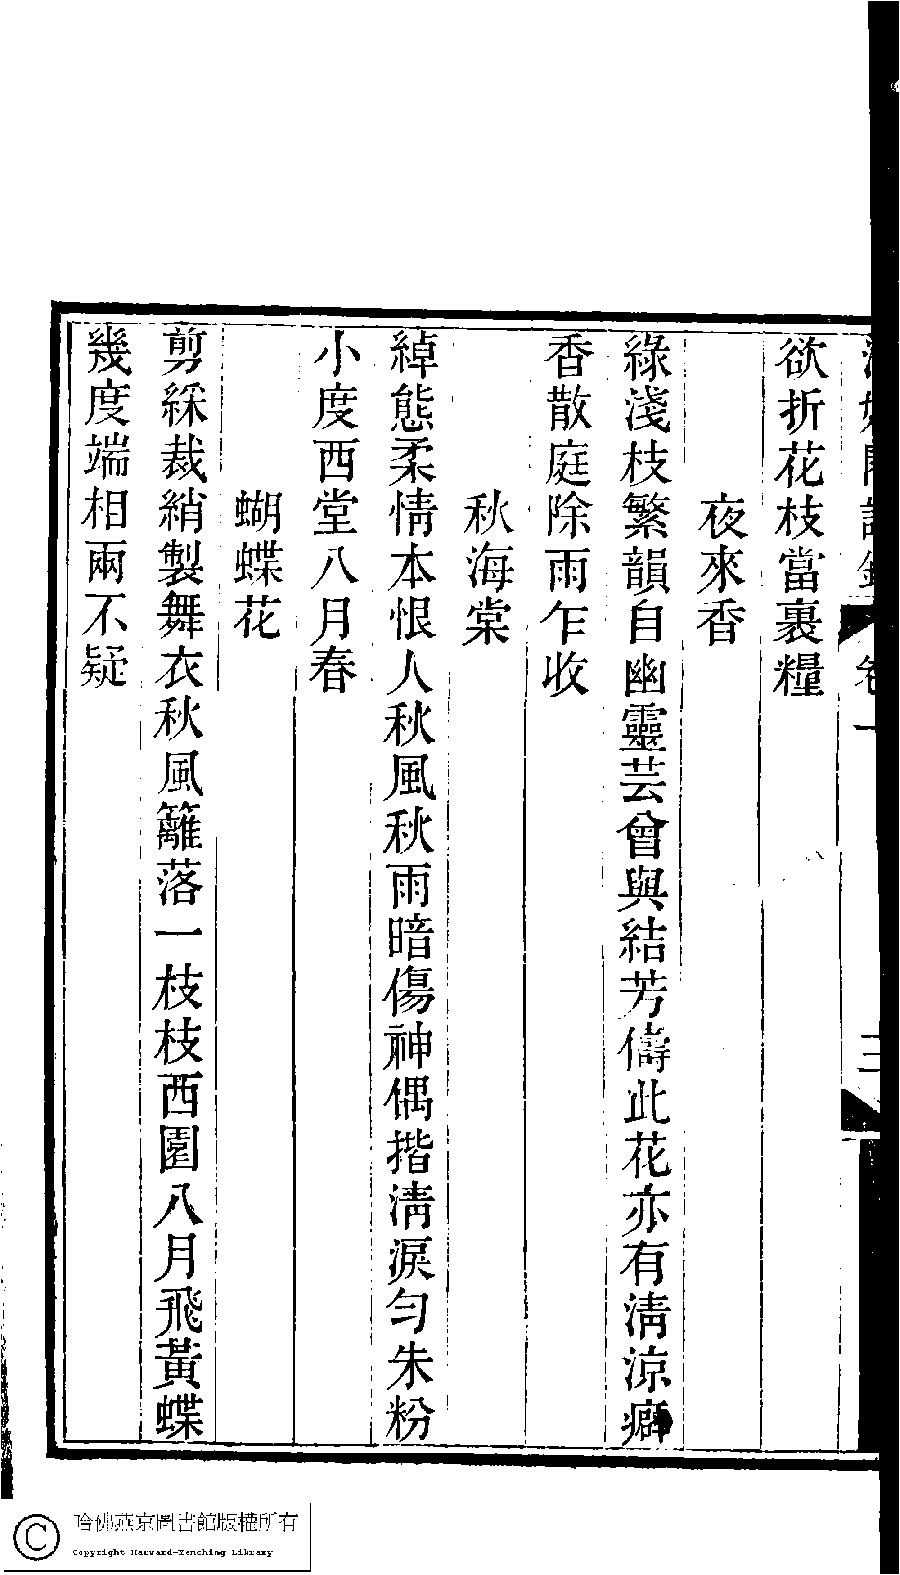 欲折花枝當裹糧
夜來香
綠淺枝繁韻自幽靈芸曾與結芳儔此花亦有淸涼癖
香散庭除雨乍收
秋海棠
綽態柔情本恨人秋風秋雨暗傷神偶揩淸淚勻朱粉
小度西堂八月春
蝴蝶花
剪綵裁綃製舞衣秋風籬落一枝枝西園八月飛黃蝶
幾度端相兩不疑
哈佛燕京圖書館版權所有
Copyright Harvard-Yenching Library